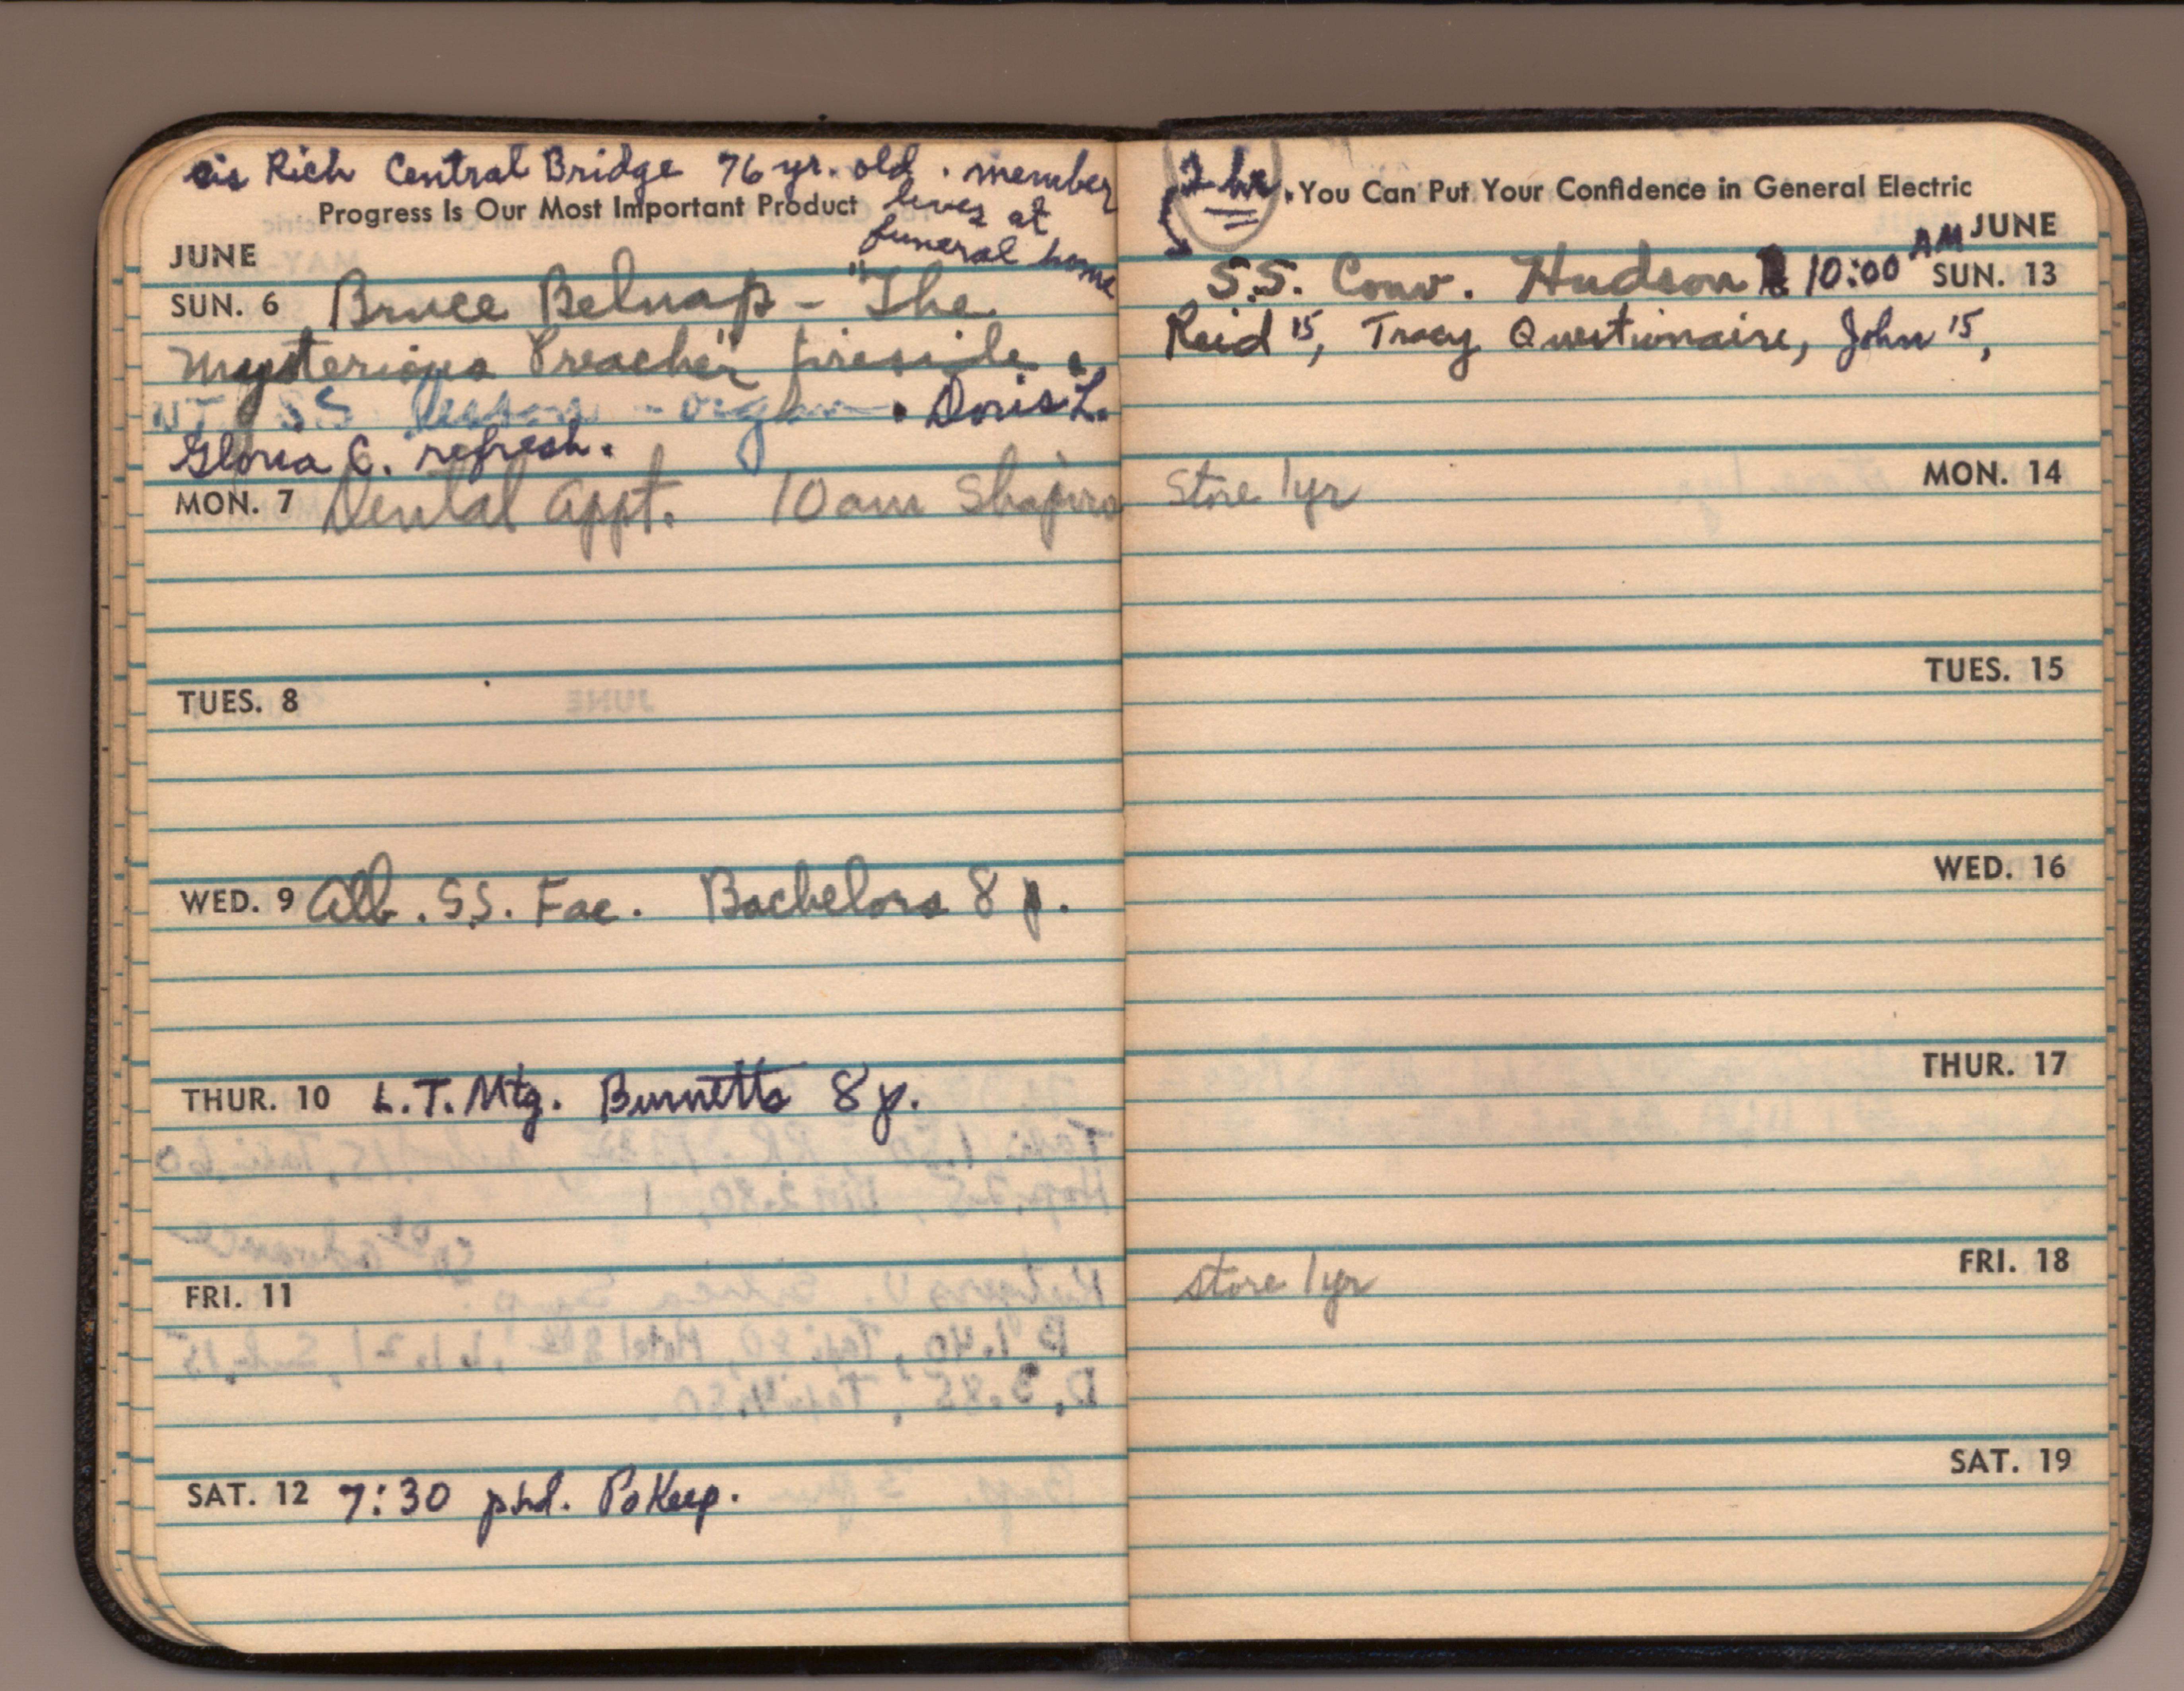 Rich Central Bridge 76 yr. old. member
lives at
funeral home
Progress Is Our Most Important Product
JUNE
SUN. 6 Bruce Belnap - "The
Mysterious Preacher" fireside.
NT. SS lesson - organ. Doris L.
Gloria C. refresh.
MON. 7 Dental appt. 10am Shapiro
TUES. 8
WED. 9 Alb. S.S. Fac. Bachelors 8 p.
THUR. 10 L.T. Mtg. Burnetts 8 p.
FRI. 11
SAT. 12 7:30 psd. PoKeep.
2 hr. You Can Put Your Confidence in General Electric
JUNE
S.S. Conv. Hudson 10:00 AM SUN. 13
Reid 15, Tracy Questionaire, John 15,
Store 1yr MON. 14
TUES. 15
WED. 16
THUR. 17
FRI. 18
store 1yr
SAT. 19